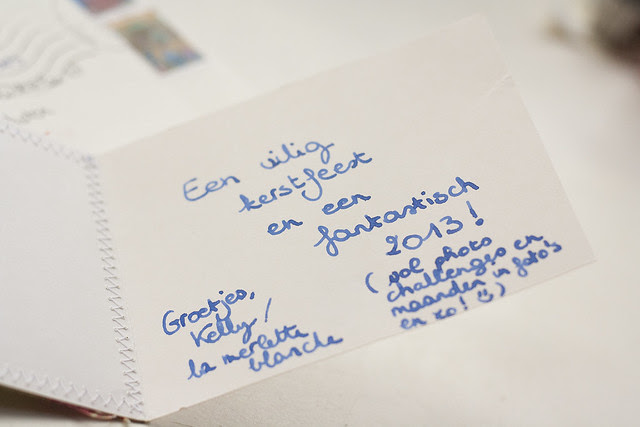 Een zilig
kerstfeest
en een
fantastisch
2013!
(vol photo
challenges en
maanden in foto's
en zo! :))
Groetjes,
Kelly /
la merlette
blanche